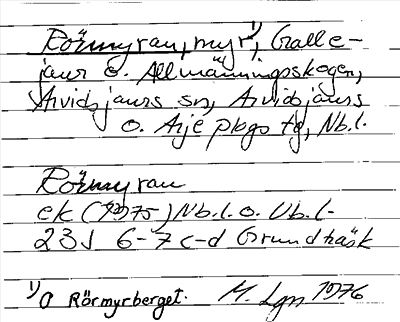 Rörmyran, myr¹⁾, Galle-
jaur o. Allmänningsskogen,
Arvidsjaurs sn, Arvidsjaurs
o. Arjeplogs tg, Nb.l.
Rörmyran
ek (1975) Nb.l. o. Vb.l.
23J 6-7 c-d Grundträsk
¹⁾ O Rörmyrberget. M. Lgn 1976